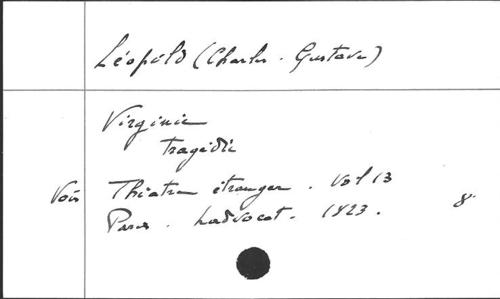 Léopold (Charles. Gustave)
Virginie
tragédie
Voir Théâtre étranger. Vol 13
Paris. Ladvocat. 1823. 8°